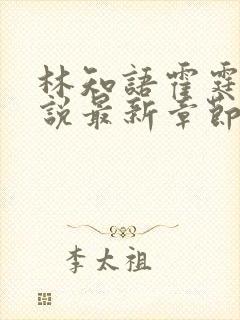 林知語霍霆
說最新章節
李太祖